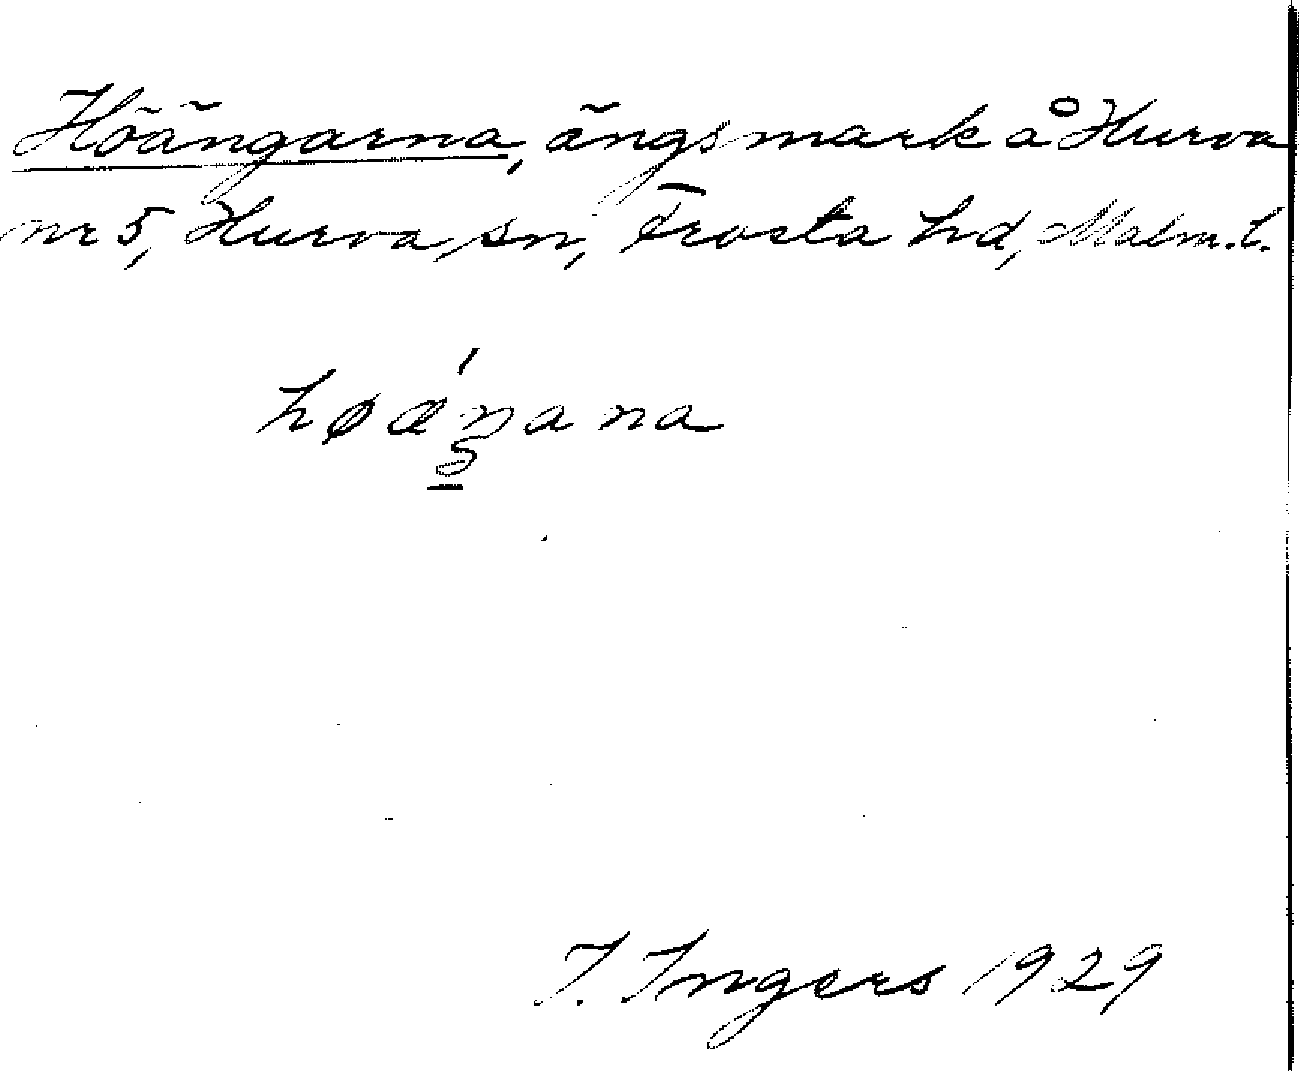 Höängarna, ängsmark å Hurva
nr 5, Hurva sn, Frosta hd, Malm. l.
høæ´ŋana
I. Ingers 1929